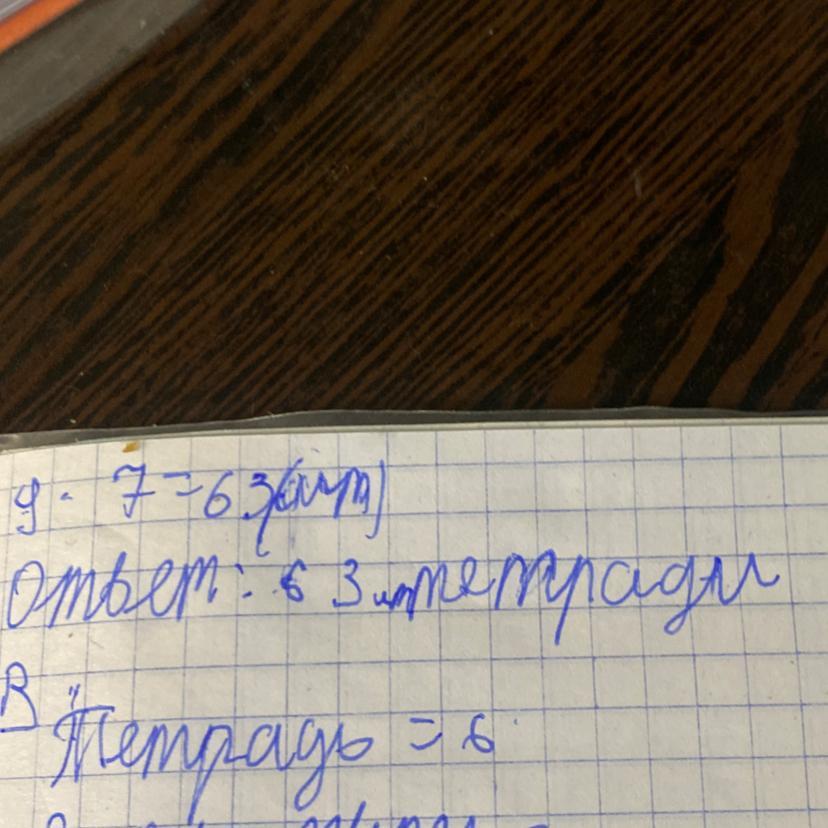 9 · 7 = 63(шт)
Ответ: 63 шт тетради
В
Тетрадь = 6